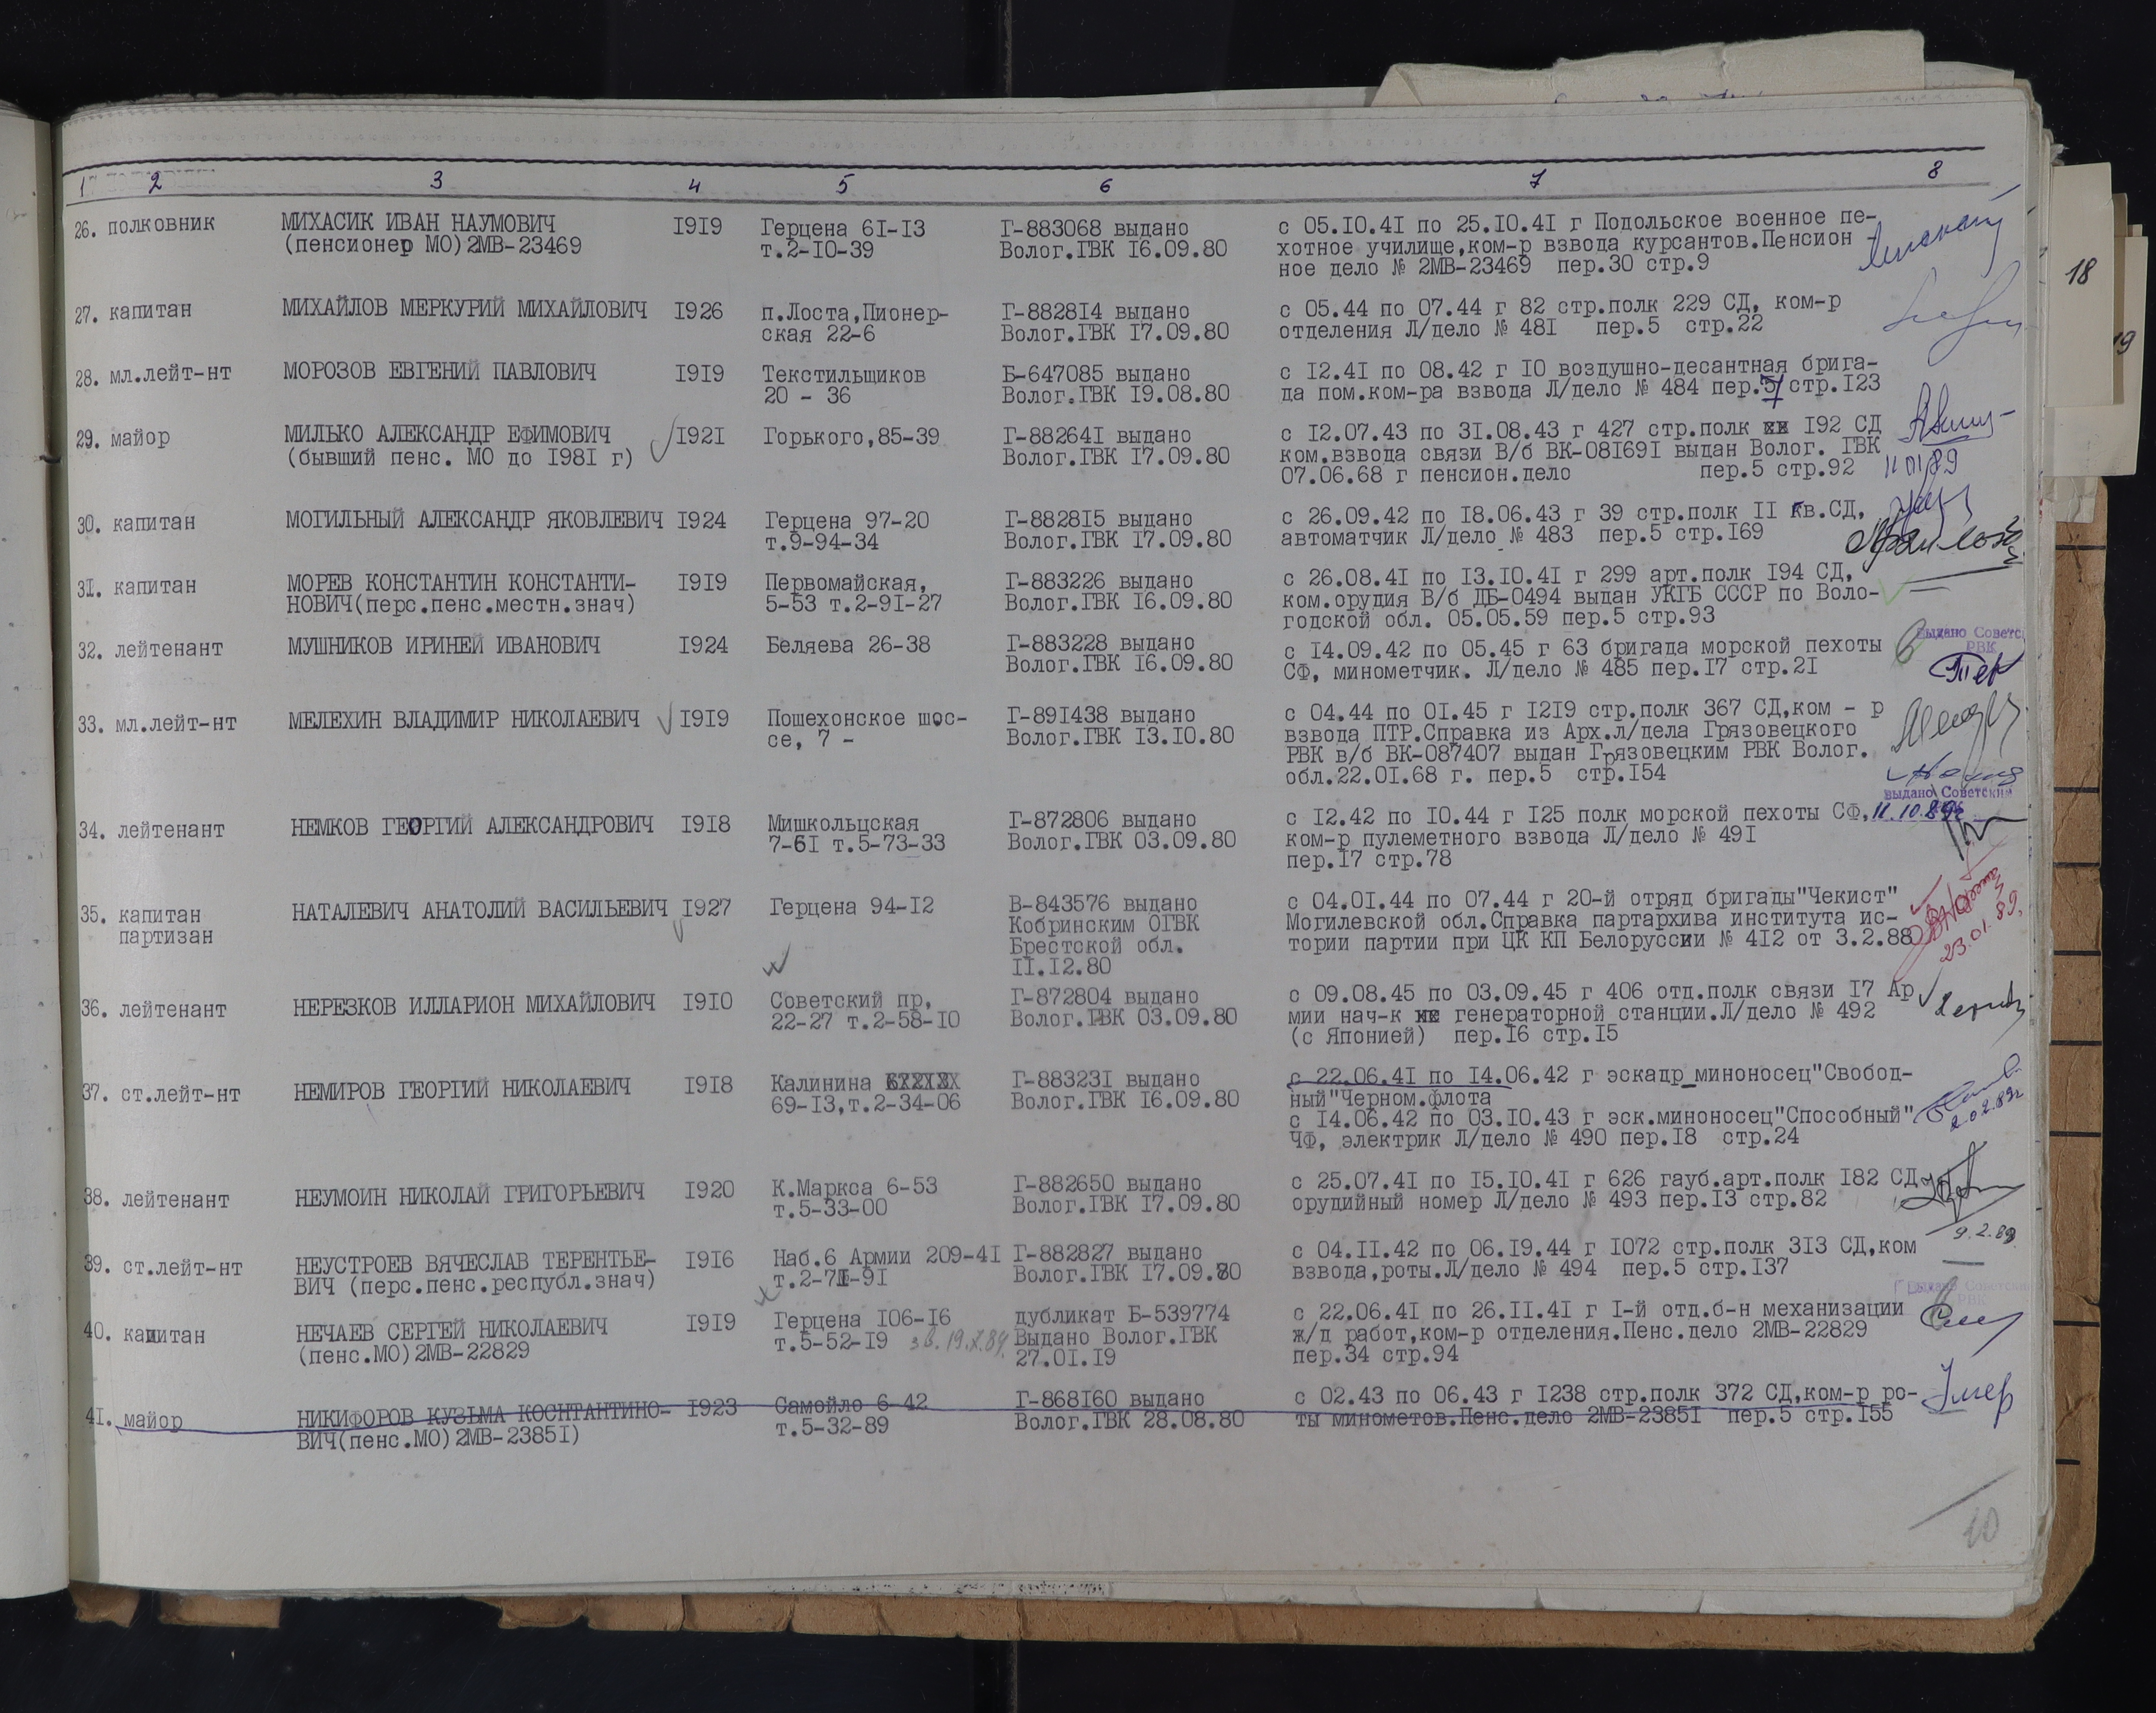 1 2 3 4 5 6 7 8
26. полковник МИХАСИК ИВАН НАУМОВИЧ 1919 Герцена 61-13 Г-883068 выдано с 05.10.41 по 25.10.41 г Подольское военное пе-
(пенсионер МО)2МВ-23469 т.2-10-39 Волог.ГВК 16.09.80 хотное училище,ком-р взвода курсантов.Пенсион -
ное дело № 2МВ-23469 пер.30 стр.9
18
27. капитан МИХАЙЛОВ МЕРКУРИЙ МИХАЙЛОВИЧ 1926 п.Лоста,Пионер- Г-882814 выдано с 05.44 по 07.44 г 82 стр.полк 229 СД, ком-р
ская 22-6 Волог.ГВК 17.09.80 отделения Л/дело № 481 пер.5 стр.22
19
28. мл.лейт-нт МОРОЗОВ ЕВГЕНИЙ ПАВЛОВИЧ 1919 Текстильщиков Б-647085 выдано с 12.41 по 08.42 г 10 воздушно-десантная брига-
20 - 36 Волог.ГВК 19.08.80 да пом.ком-ра взвода Л/дело № 484 пер.5/ стр.123
29. майор МИЛЬКО АЛЕКСАНДР ЕФИМОВИЧ 1921 Горького,85-39 Г-882641 выдано с 12.07.43 по 31.08.43 г 427 стр.полк 192 СД
(бывший пенс. МО до 1981 г) Волог.ГВК 17.09.80 ком.взвода связи В/б ВК-081691 выдан Волог. ГВК
07.06.68 г пенсион.дело пер.5 стр.92 11 01/89
30. капитан МОГИЛЬНЫЙ АЛЕКСАНДР ЯКОВЛЕВИЧ 1924 Герцена 97-20 Г-882815 выдано с 26.09.42 по 18.06.43 г 39 стр.полк 11 Гв.СД,
т.9-94-34 Волог.ГВК 17.09.80 автоматчик Л/дело № 483 пер.5 стр.169
31. капитан МОРЕВ КОНСТАНТИН КОНСТАНТИ- 1919 Первомайская, Г-883226 выдано с 26.08.41 по 13.10.41 г 299 арт.полк 194 СД,
НОВИЧ(перс.пенс.местн.знач) 5-53 т.2-91-27 Волог.ГВК 16.09.80 ком.орудия В/б ДБ-0494 выдан УКГБ СССР по Воло-
годской обл. 05.05.59 пер.5 стр.93
32. лейтенант МУШНИКОВ ИРИНЕЙ ИВАНОВИЧ 1924 Беляева 26-38 Г-883228 выдано с 14.09.42 по 05.45 г 63 бригада морской пехоты выдано Советс
Волог.ГВК 16.09.80 СФ, минометчик. Л/дело № 485 пер.17 стр.21 РВК
33. мл.лейт-нт МЕЛЕХИН ВЛАДИМИР НИКОЛАЕВИЧ 1919 Пошехонское шос- Г-891438 выдано с 04.44 по 01.45 г 1219 стр.полк 367 СД,ком - р
се, 7 - Волог.ГВК 13.10.80 взвода ПТР.Справка из Арх.л/дела Грязовецкого
РВК в/б ВК-087407 выдан Грязовецким РВК Волог.
обл.22.01.68 г. пер.5 стр.154
выдано Советским
34. лейтенант НЕМКОВ ГЕОРГИЙ АЛЕКСАНДРОВИЧ 1918 Мишкольцская Г-872806 выдано с 12.42 по 10.44 г 125 полк морской пехоты СФ, 11.10.89г
7-61 т.5-73-33 Волог.ГВК 03.09.80 ком-р пулеметного взвода Л/дело № 491
пер.17 стр.78
35. капитан НАТАЛЕВИЧ АНАТОЛИЙ ВАСИЛЬЕВИЧ 1927 Герцена 94-12 В-843576 выдано с 04.01.44 по 07.44 г 20-й отряд бригады"Чекист"
партизан Кобринским ОГВК Могилевской обл.Справка партархива института ис-
Брестской обл. тории партии при ЦК КП Белоруссии № 412 от 3.2.88 23.01.89.
11.12.80
36. лейтенант НЕРЕЗКОВ ИЛЛАРИОН МИХАЙЛОВИЧ 1910 Советский пр, Г-872804 выдано с 09.08.45 по 03.09.45 г 406 отд.полк связи 17 Ар
22-27 т.2-58-10 Волог.ГВК 03.09.80 мии нач-к генераторной станции.Л/дело № 492
(с Японией) пер.16 стр.15
37. ст.лейт-нт НЕМИРОВ ГЕОРГИЙ НИКОЛАЕВИЧ 1918 Калинина Г-883231 выдано с 22.06.41 по 14.06.42 г эскадр_миноносец"Свобод-
69-13,т.2-34-06 Волог.ГВК 16.09.80 ный"Черном.флота
с 14.06.42 по 03.10.43 г эск.миноносец"Способный" 2.02.89г
ЧФ, электрик Л/дело № 490 пер.18 стр.24
38. лейтенант НЕУМОИН НИКОЛАЙ ГРИГОРЬЕВИЧ 1920 К.Маркса 6-53 Г-882650 выдано с 25.07.41 по 15.10.41 г 626 гауб.арт.полк 182 СД
т.5-33-00 Волог.ГВК 17.09.80 орудийный номер Л/дело № 493 пер.13 стр.82
9.2.89
39. ст.лейт-нт НЕУСТРОЕВ ВЯЧЕСЛАВ ТЕРЕНТЬЕ- 1916 Наб.6 Армии 209-41 Г-882827 выдано с 04.11.42 по 06.19.44 г 1072 стр.полк 313 СД,ком
ВИЧ (перс.пенс.республ.знач) т.2-71-91 Волог.ГВК 17.09.80 взвода,роты.Л/дело № 494 пер.5 стр.137
выдано Советским
РВК
40. капитан НЕЧАЕВ СЕРГЕЙ НИКОЛАЕВИЧ 1919 Герцена 106-16 дубликат Б-539774 с 22.06.41 по 26.11.41 г 1-й отд.б-н механизации
(пенс.МО)2МВ-22829 т.5-52-19 зв.19.X.84. Выдано Волог.ГВК ж/д работ,ком-р отделения.Пенс.дело 2МВ-22829
27.01.19 пер.34 стр.94
41. майор НИКИФОРОВ КУЗЬМА КОСНТАНТИНО- 1923 Самойло 6-42 Г-868160 выдано с 02.43 по 06.43 г 1238 стр.полк 372 СД,ком-р ро- Умер
ВИЧ(пенс.МО)2МВ-23851) т.5-32-89 Волог.ГВК 28.08.80 ты минометов.Пенс.дело 2МВ-23851 пер.5 стр.155
10